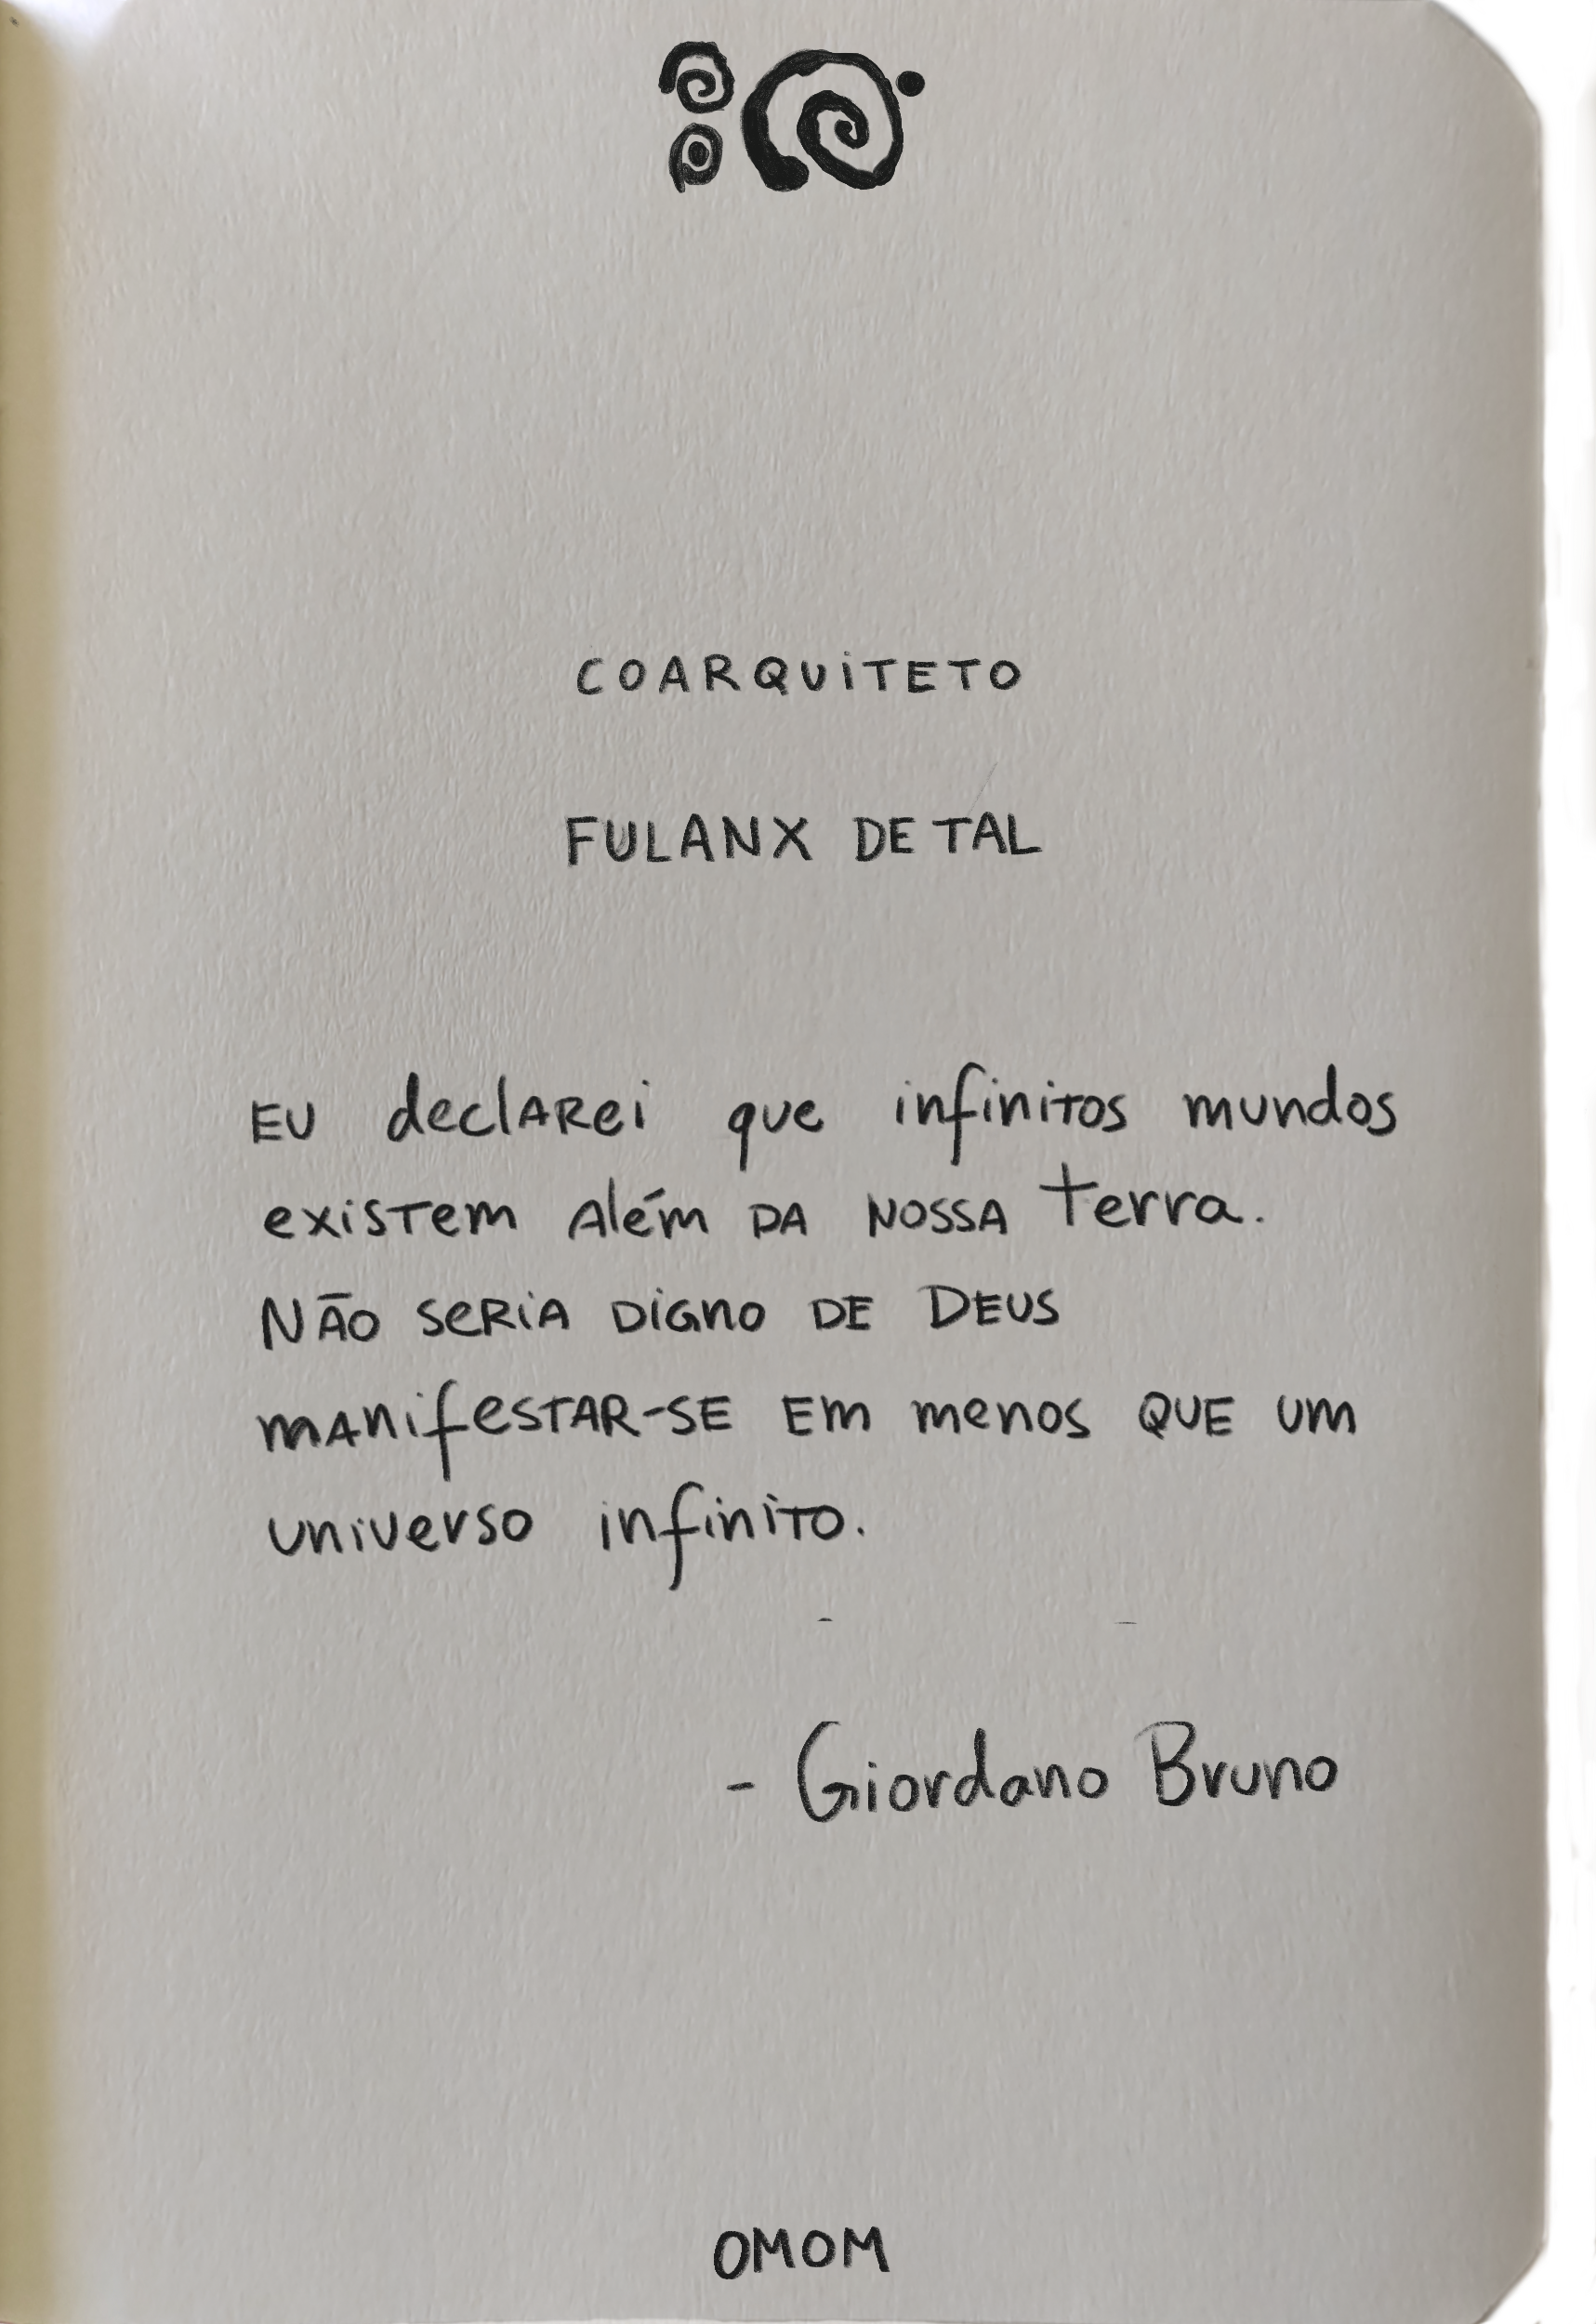 COARQUiTETO
FULANX DE TAL
EU declARei que infinitos mundos
existem Além DA NOSSA terra.
NÃO seRiA DiGno DE DEUS
mAnifeSTAR-SE Em menos QUE um
universo infinito.
- Giordano Bruno
OMOM